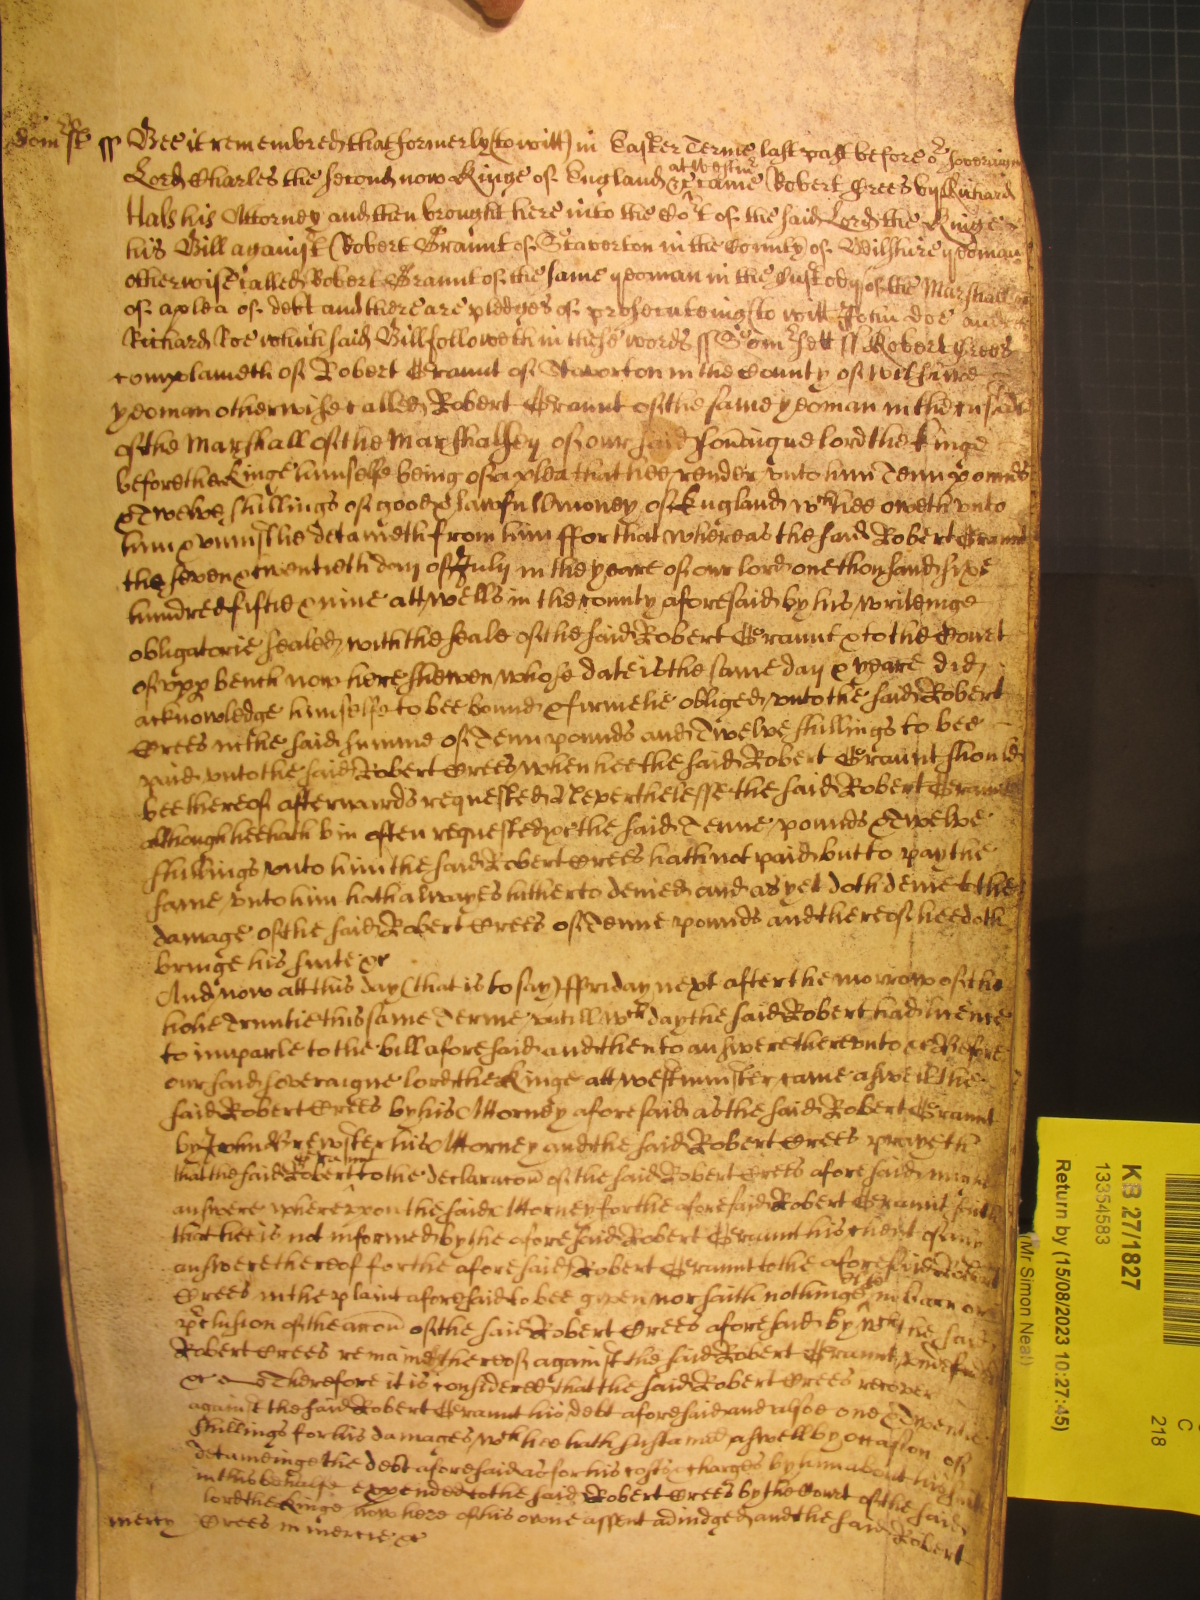 Som̃sett ss Bee it remembred that formerly (to witt) in Easter Terme last past before or soveraign
Lord Charles the second now Kinge of England &c at Westmr came Robert Crees by Richard
Hals his Attorney and then brought here into the Cort of the said Lord the Kinge
his Bill against Robert Graunt of Staverton in the County of Wiltshire yeoman
otherwise called Robert Graunt of the same yeoman in the Custody of the Marshall &c
of a plea of debt and there are pledges of prosecuteing (to witt) John Doe and
Richard Roe which said Bill followeth in these words ss Som̃sett ss Robert Crees
complaineth of Robert Graunt of Staverton in the County of Wiltshire
yeoman otherwise called Robert Graunt of the same yeoman in the custodie
of the Marshall of the Marshalsey of our said soṽaigne lord the Kinge
before the Kinge himselfe being of a plea that hee render unto him Tenn pounds
& Twelve shillings of good & lawfull money of England wch hee oweth unto
him & uniustlie detaineth from him ffor that whereas the said Robert Graunt
the seven & twentieth day of July in the yeare of our lord one thousand sixe
hundred fiftie & nine att Wells in the county aforesaid by his writeinge
obligatorie sealed with the seale of the said Robert Graunt & to the Court
of upp bench now here shewen whose date is the same day & yeare did
acknowledge himselfe to bee bound & firmelie obliged unto the said Robert
Crees in the said summe of Tenn pounds and Twelve shillings to bee
paid unto the said Robert Crees when hee the said Robert Graunt should
bee thereof afterwards requested Neverthelesse the said Robert Graunt
although hee hath bin often requested &c the said Tenne pounds & Twelve
shillings unto him the said Robert Crees hath not paid but to pay the
same unto him hath alwayes hitherto denied and as yet doth denie to the
damage of the said Robert Crees of Tenne pounds and thereof hee doth
bringe his suite &c
And now att this day (that is to say) ffriday next after the morrow of the
holie Trinitie this same Terme untill wch day the said Robert had licence
to imparle to the bill aforesaid and then to answere thereunto &c Before
our said soveraigne lord the Kinge att Westminster came aswell the
said Robert Crees by his Attorney aforesaid as the said Robert Graunt
by John Brewster his Attorney and the said Robert Crees prayeth
that the said Robert Graunt to the declaracon of the said Robert Crees aforesaid may
answere whereupon the said Attorney for the aforesaid Robert Graunt saith
that hee is not informed by the aforesaid Robert Graunt his client of any
answere thereof for the aforesaid Robert Graunt to the aforesaid Robert
Crees in the plaint aforesaid to bee given nor saith nothinge else in barr or
p̃clusion of the accon of the said Robert Crees aforesaid by wch the said
Robert Crees remaineth thereof against the said Robert Graunt undefended
&c Therefore it is considered that the said Robert Crees recover
against the said Robert Graunt his debt aforesaid and alsoe one & Twentie
shillings for his damages wch hee hath sustained aswell by occasion of
detaineinge the debt aforesaid as for his costs & charges by him about his suite
in this behalfe expended to the said Robert Crees by the Court of the said
lord the Kinge now here of his owne assent adiudged and the said Robert
mercy Crees in mercie &c
KB 27/1827
13354583
Return by (15/08/2023 10:27:45)
(Mr Simon Neal)
C
218